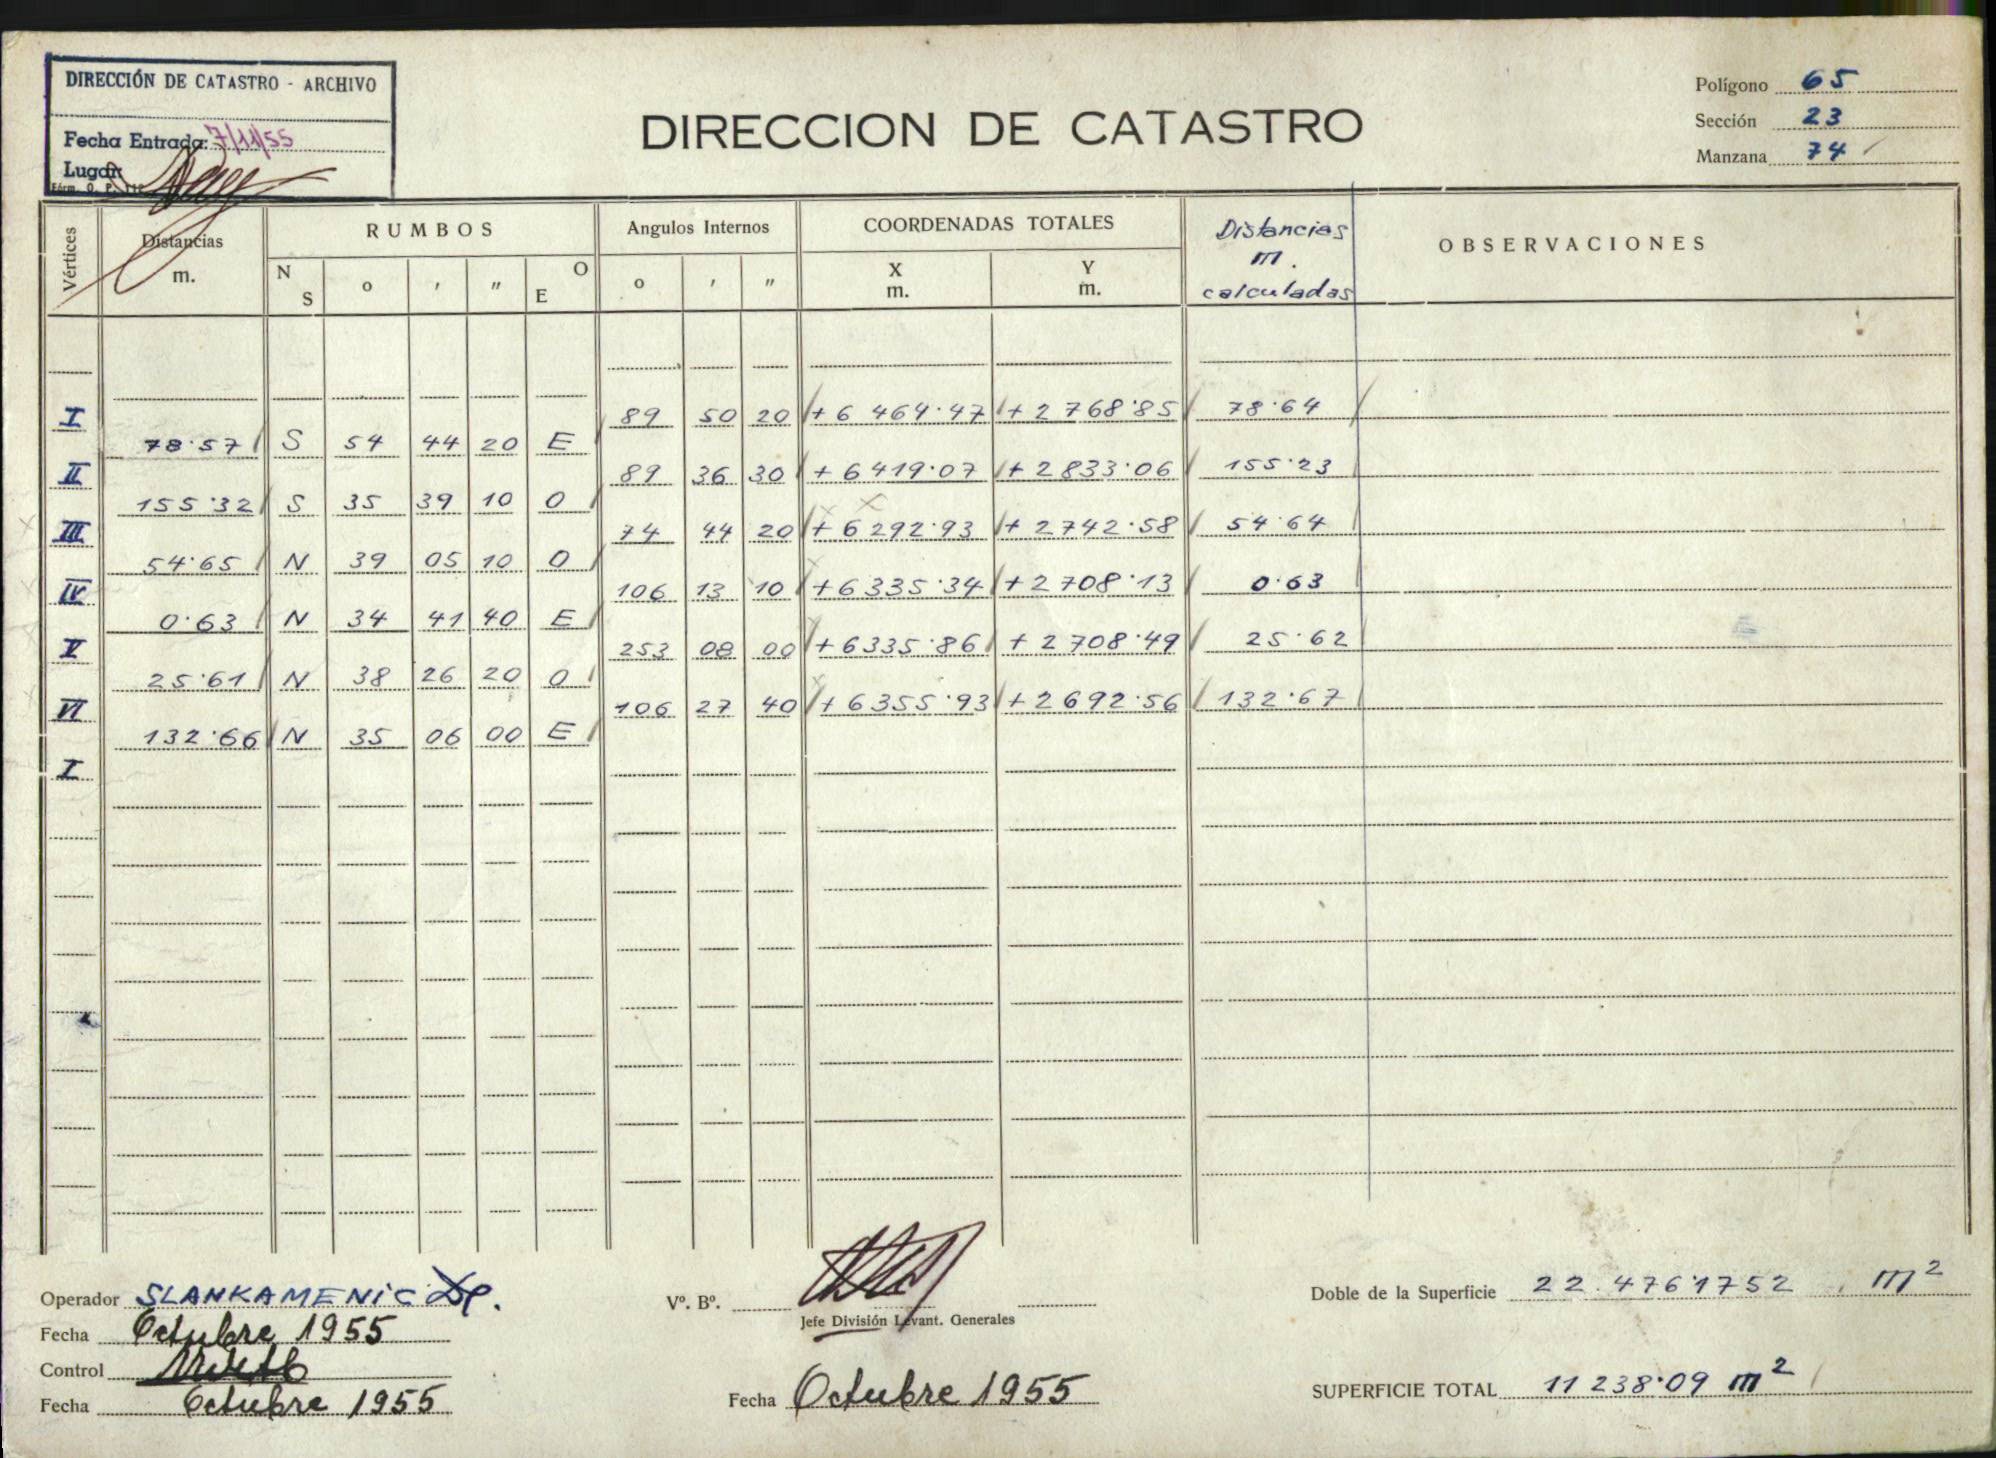 DIRECCIÓN DE CATASTRO - ARCHIVO
Fecha Entrada: 7/11/55
Lugar:
Fórm. O. P.
DIRECCION DE CATASTRO
Polígono 65
Sección 23
Manzana 74
Vértices Distancias m. RUMBOS Angulos Internos COORDENADAS TOTALES Distancias m. calculadas OBSERVACIONES
N S o ' " O E o ' " X m. Y m.
I 89 50 20 +6 464.47 +2 768.85 78.64
78.57 S 54 44 20 E
II 89 36 30 +6419.07 +2833.06 155.23
155.32 S 35 39 10 O
III 74 44 20 +6292.93 +2742.58 54.64
54.65 N 39 05 10 O
IV 106 13 10 +6335.34 +2708.13 0.63
0.63 N 34 41 40 E
V 253 08 00 +6335.86 +2708.49 25.62
25.61 N 38 26 20 O
VI 106 27 40 +6355.93 +2692.56 132.67
132.66 N 35 06 00 E
I
Operador SLANKAMENIC
Fecha Octubre 1955
Control
Fecha Octubre 1955
Vº. Bº.
Jefe División Levant. Generales
Fecha Octubre 1955
Doble de la Superficie 22.476.1752 m²
SUPERFICIE TOTAL 11 238.09 m²